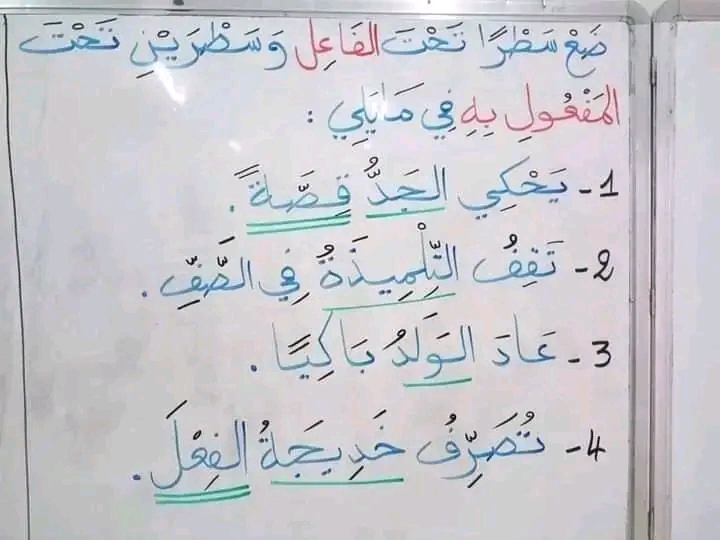 ضَعْ سَطْرًا تَحْتَ الفَاعِلِ وَسَطْرَيْنِ تَحْتَ
المَفْعُولِ بِهِ فِي مَايَلِي :
1- يَحْكِي الجَدُّ قِصَّةً .
2- تَقِفُ التِّلْمِيذَةُ فِي الصَّفِّ .
3- عَادَ الوَلَدُ بَاكِيًا .
4- تُصَرِّفُ خَدِيجَةُ الفِعْلَ .